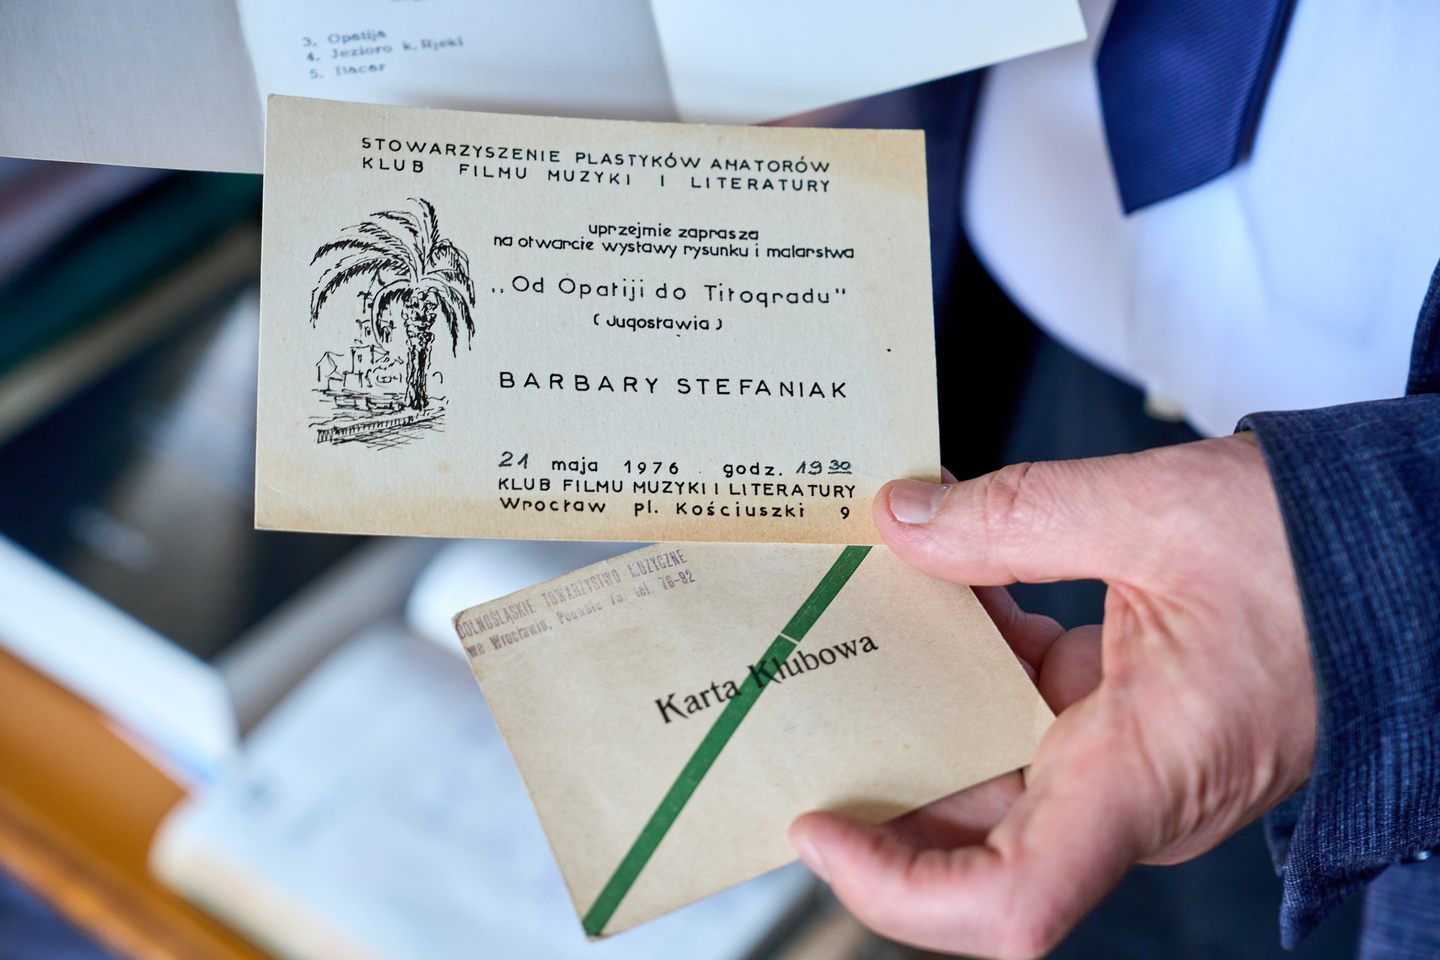 3. Opatija
4. Jezioro k. Rjeki
5. Bacar
STOWARZYSZENIE PLASTYKÓW AMATORÓW
KLUB FILMU MUZYKI I LITERATURY
uprzejmie zaprasza
na otwarcie wystawy rysunku i malarstwa
„Od Opatiji do Titogradu"
(Jugosławia)
BARBARY STEFANIAK
21 maja 1976 godz. 19 30
KLUB FILMU MUZYKI I LITERATURY
Wrocław pl. Kościuszki 9
DOLNOŚLĄSKIE TOWARZYSTWO MUZYCZNE
we Wrocławiu, tel. 76-92
Karta Klubowa